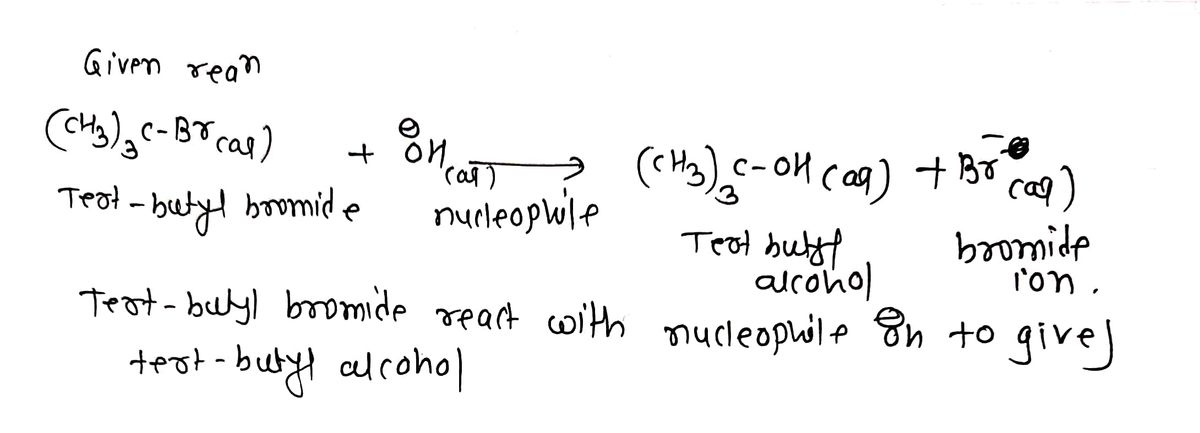 Given rean
(CH₃)₃C-Br(aq) + ⊖OH(aq) ⟶ (CH₃)₃C-OH(aq) + Br⁻(aq)
Tert-butyl bromide nucleophile Tert butyl alcohol bromide ion.
Tert-butyl bromide react with nucleophile ⊖OH to gives
tert-butyl alcohol